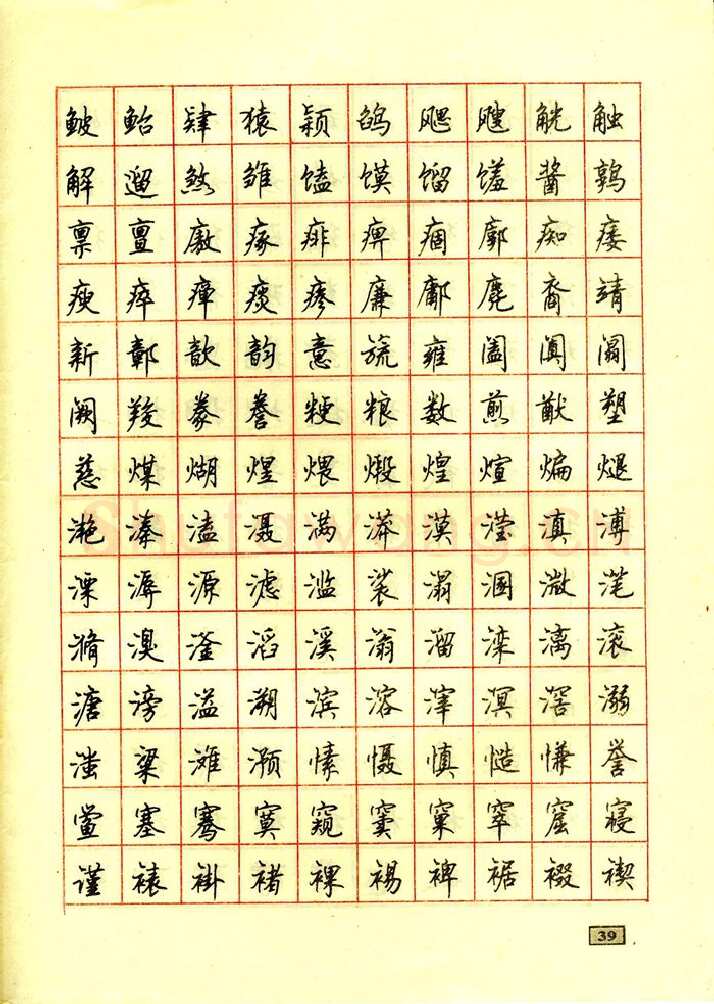 鲅 鲐 肆 猿 颖 鸽 飔 飕 觥 触
解 遛 煞 雏 馌 馍 馏 馐 酱 鹑
禀 亶 廒 瘃 痱 痹 痼 廓 痴 痿
瘐 瘁 瘅 痰 瘆 廉 鄘 麂 裔 靖
新 鄣 歆 韵 意 旒 雍 阖 阗 阘
阙 羧 豢 誊 粳 粮 数 煎 猷 塑
慈 煤 煳 煜 煨 煅 煌 煊 煸 煺
滟 溱 溘 滠 满 漭 漠 滢 滇 溥
溧 溽 源 滤 滥 裟 溻 溷 溦 滗
滫 溴 滏 滔 溪 滃 溜 滦 漓 滚
溏 滂 溢 溯 滨 溶 滓 溟 滘 溺
滍 粱 滩 滪 愫 慑 慎 慥 慊 誉
鲎 塞 骞 寞 窥 窦 窠 窣 窟 寝
谨 裱 褂 褚 裸 裼 裨 裾 裰 禊
39